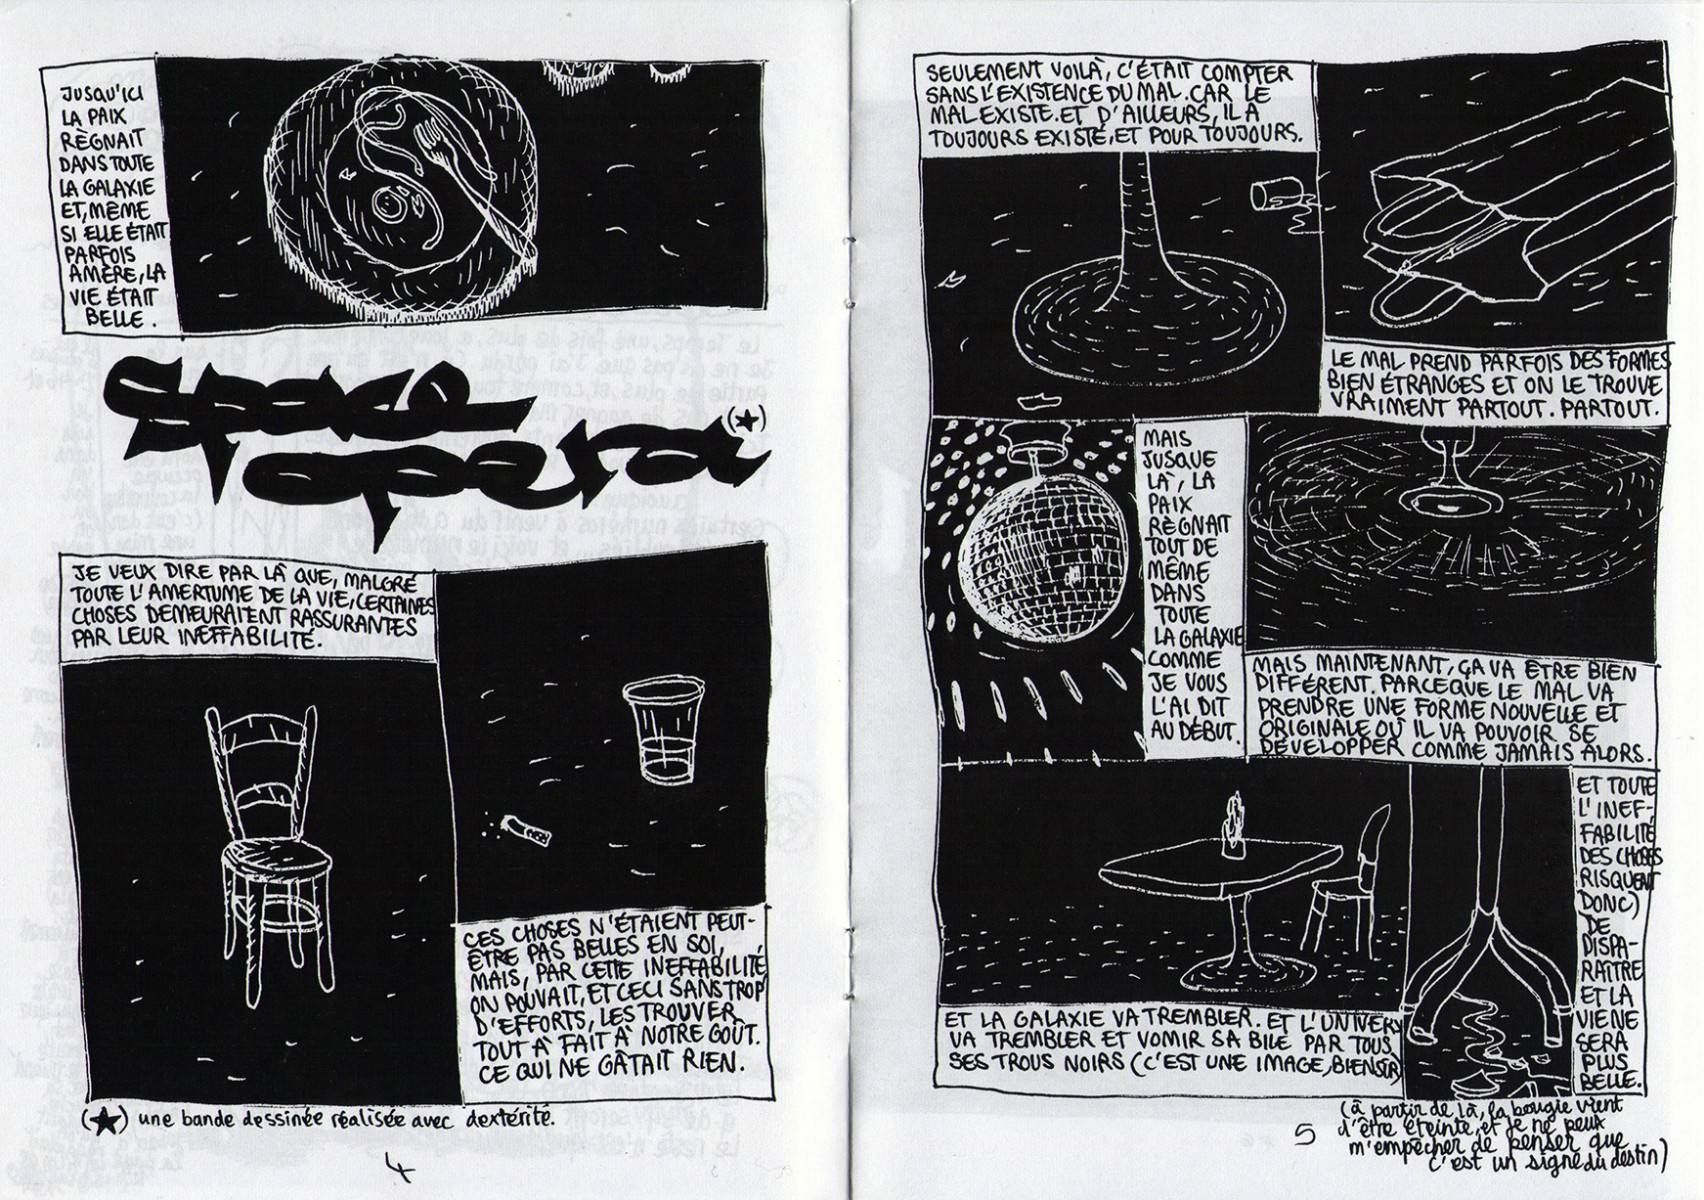 JUSQU'ICI
LA PAIX
RÈGNAIT
DANS TOUTE
LA GALAXIE
ET, MÊME
SI ELLE ÉTAIT
PARFOIS
AMÈRE, LA
VIE ÉTAIT
BELLE.
Space
opera (★)
JE VEUX DIRE PAR LÀ QUE, MALGRÉ
TOUTE L'AMERTUME DE LA VIE, CERTAINES
CHOSES DEMEURAIENT RASSURANTES
PAR LEUR INEFFABILITÉ.
CES CHOSES N'ÉTAIENT PEUT-
ÊTRE PAS BELLES EN SOI,
MAIS, PAR CETTE INEFFABILITÉ,
ON POUVAIT, ET CECI SANS TROP
D'EFFORTS, LES TROUVER
TOUT À FAIT À NOTRE GOÛT.
CE QUI NE GÂTAIT RIEN.
(★) une bande dessinée réalisée avec dextérité.
4
SEULEMENT VOILÀ, C'ÉTAIT COMPTER
SANS L'EXISTENCE DU MAL. CAR LE
MAL EXISTE. ET D'AILLEURS, IL A
TOUJOURS EXISTÉ, ET POUR TOUJOURS.
LE MAL PREND PARFOIS DES FORMES
BIEN ÉTRANGES ET ON LE TROUVE
VRAIMENT PARTOUT. PARTOUT.
MAIS
JUSQUE
LÀ, LA
PAIX
RÈGNAIT
TOUT DE
MÊME
DANS
TOUTE
LA GALAXIE
COMME
JE VOUS
L'AI DIT
AU DÉBUT.
MAIS MAINTENANT, ÇA VA ÊTRE BIEN
DIFFÉRENT. PARCEQUE LE MAL VA
PRENDRE UNE FORME NOUVELLE ET
ORIGINALE OÙ IL VA POUVOIR SE
DÉVELOPPER COMME JAMAIS ALORS.
ET LA GALAXIE VA TREMBLER. ET L'UNIVERS
VA TREMBLER ET VOMIR SA BILE PAR TOUS
SES TROUS NOIRS (C'EST UNE IMAGE, BIENSÛR)
ET TOUTE
L'INEF-
FABILITÉ
DES CHOSES
RISQUENT
DONC)
DE
DISPA-
RAÎTRE
ET LA
VIE NE
SERA
PLUS
BELLE.
(à partir de là, la bougie vient
d'être éteinte, et je ne peux
m'empêcher de penser que
c'est un signe du destin)
5